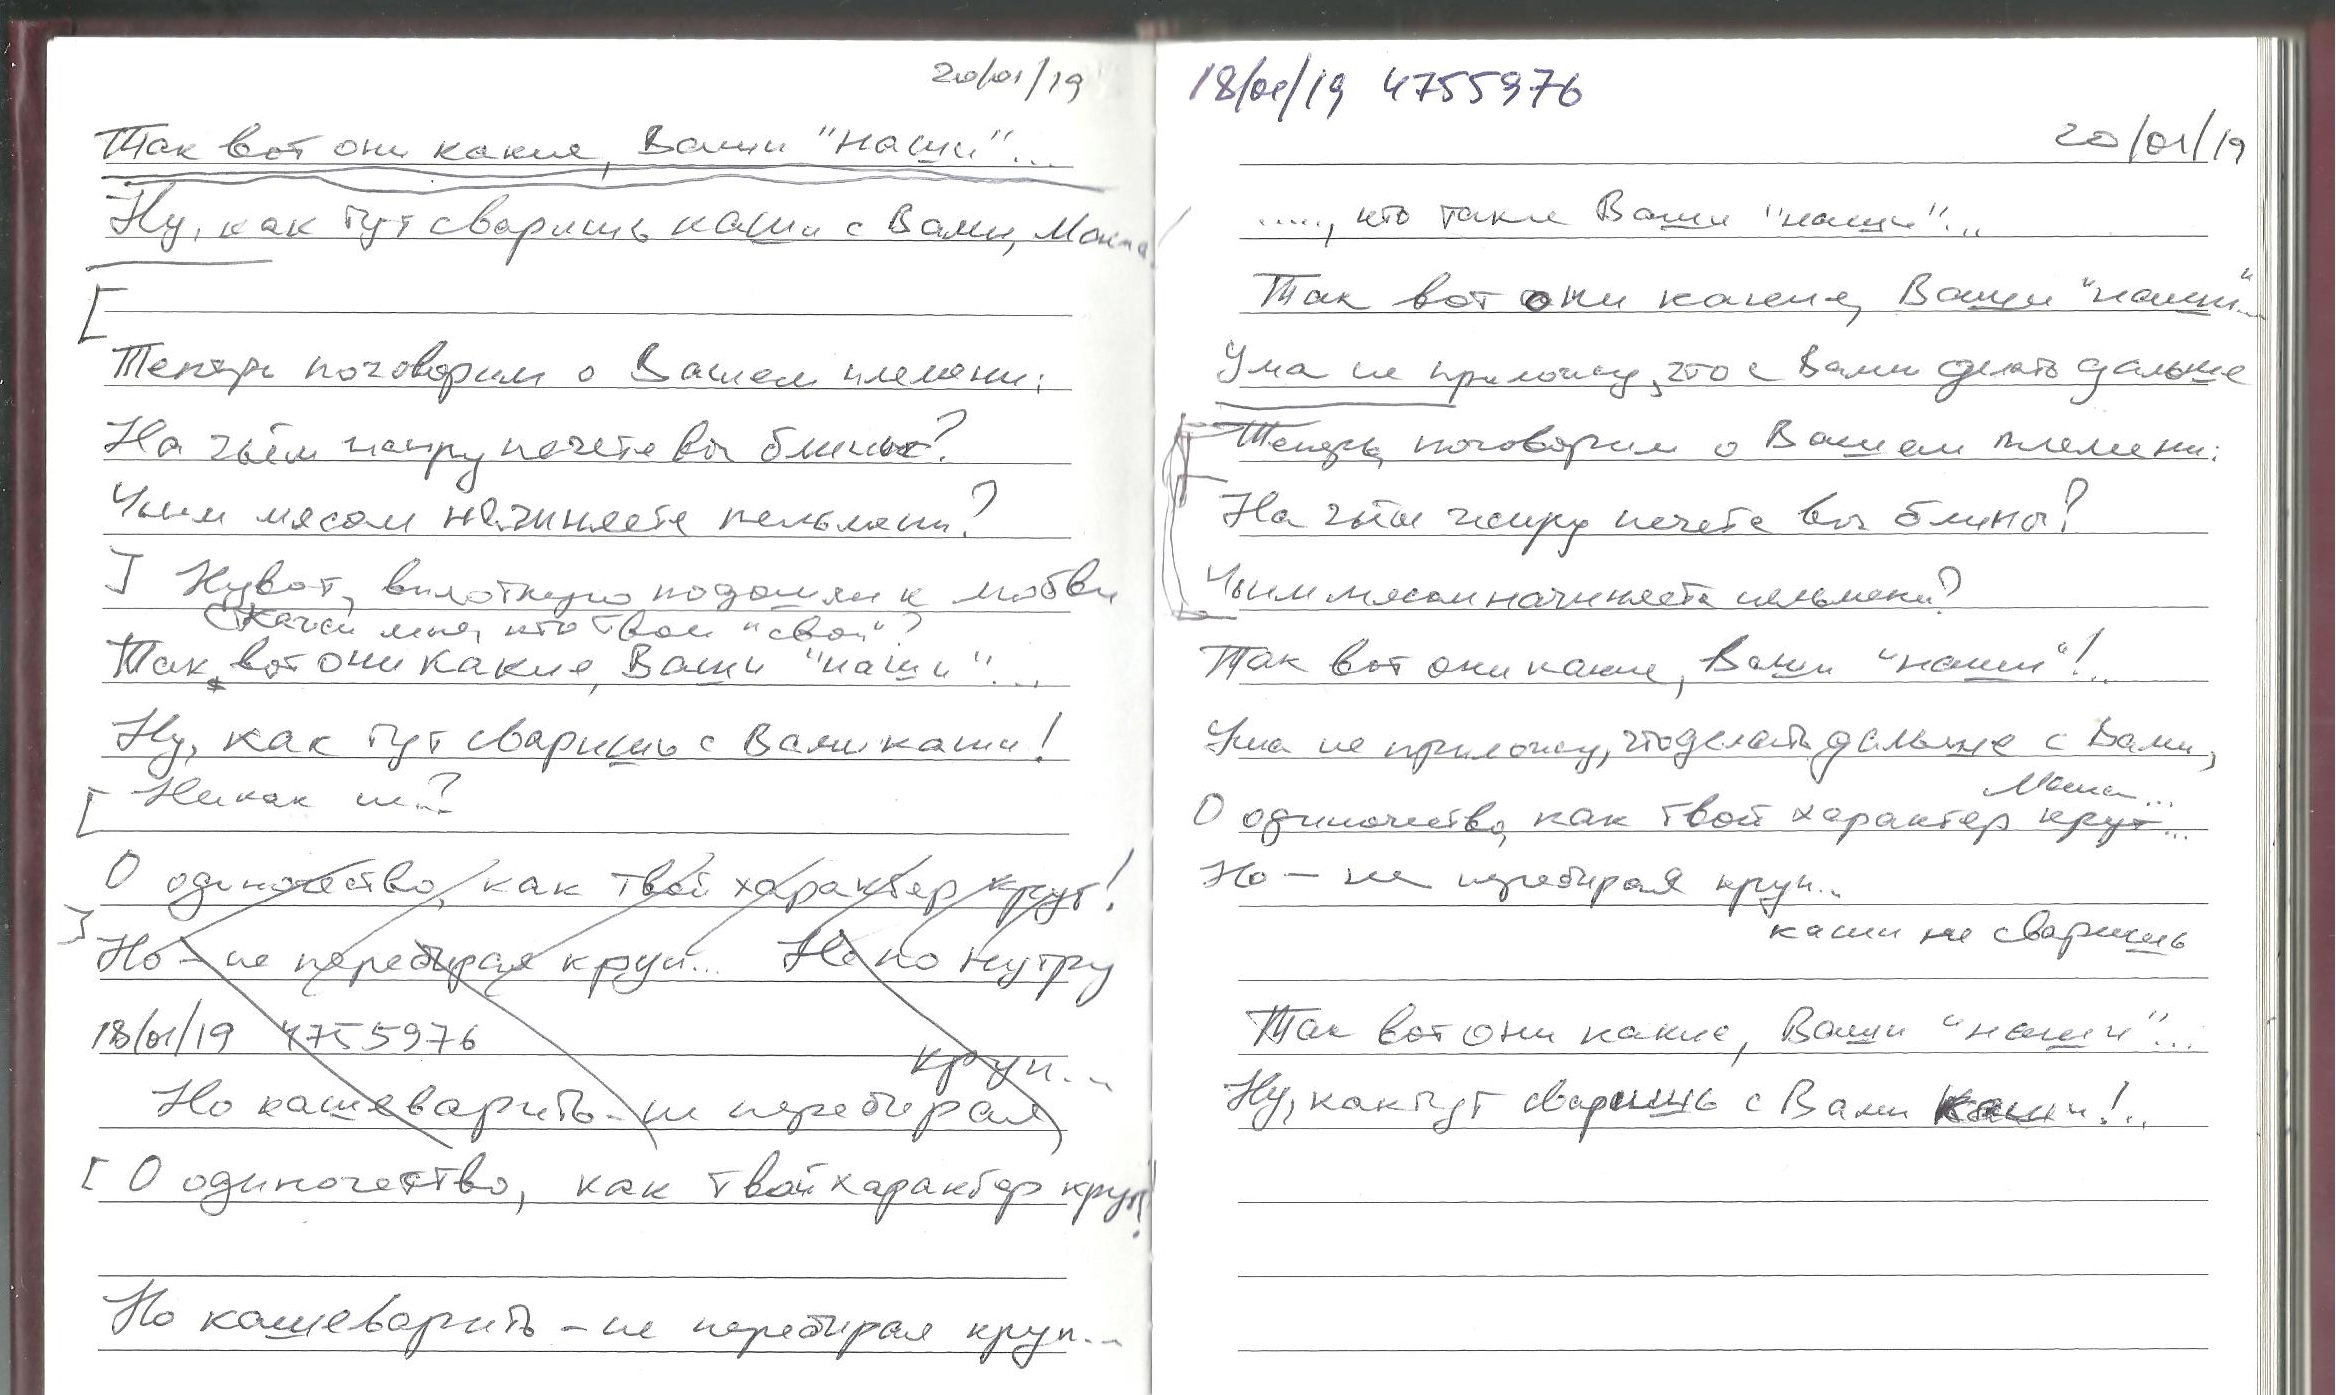 20/01/19
Так вот они какие, Ваши "наши"...
Ну, как тут сваришь каши с Вами, Маша!
[
Теперь поговорим о Вашем племени:
На чьём жиру печете вы блины?
Чьим мясом начиняете пельмени?
] Ну вот, вплотную подошли к любви
Скажи мне, кто твои "свои"?
Так вот они какие, Ваши "наши"...
Ну, как тут сваришь с Вами каши!
[ Никак не?
О одиночество, как твой характер крут!
] Но – не перебирая круп... Не по нутру
18/01/19 4755976
круп...
Но кашеварить – не перебирая
[ О одиночество, как твой характер крут!
Но кашеварить – не перебирая круп...
18/01/19 4755976
20/01/19
....., кто такие Ваши "наши"...
Так вот они какие, Ваши "наши"...
Ума не приложу, что с Вами делать дальше
Теперь поговорим о Вашем племени:
На чьём жиру печете вы блины?
Чьим мясом начиняете пельмени?
Так вот они какие, Ваши "наши"!..
Ума не приложу, что делать дальше с Вами,
Маша...
О одиночество, как твой характер крут...
Но – не перебирая круп...
каши не сваришь
Так вот они какие, Ваши "наши"...
Ну, как тут сваришь с Вами каши!..